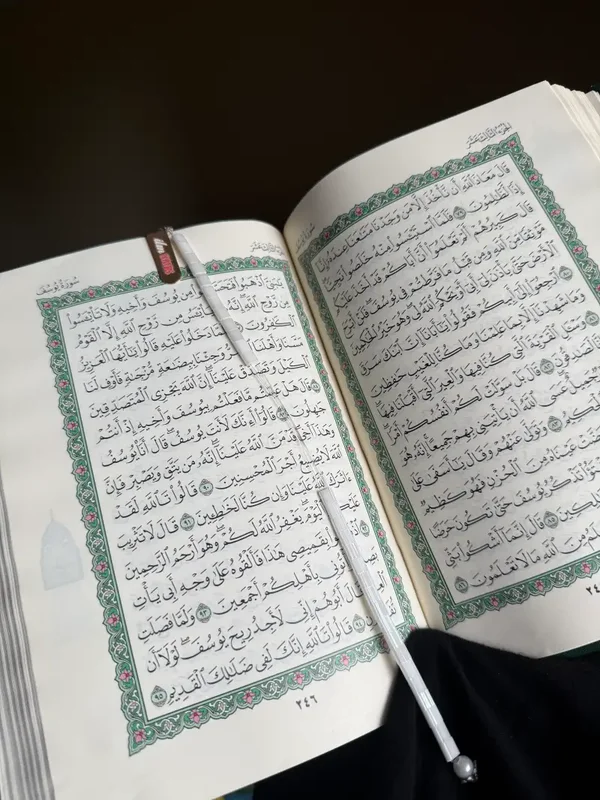 الجزء الثالث عشر
قَالَ مَعَاذَ ٱللَّهِ أَن نَّأْخُذَ إِلَّا مَن وَجَدْنَا مَتَٰعَنَا عِندَهُۥٓ إِنَّآ
إِذًا لَّظَٰلِمُونَ ٧٩ فَلَمَّا ٱسْتَيْـَٔسُوا۟ مِنْهُ خَلَصُوا۟ نَجِيًّا
قَالَ كَبِيرُهُمْ أَلَمْ تَعْلَمُوٓا۟ أَنَّ أَبَاكُمْ قَدْ أَخَذَ عَلَيْكُم
مَّوْثِقًا مِّنَ ٱللَّهِ وَمِن قَبْلُ مَا فَرَّطتُمْ فِى يُوسُفَ فَلَنْ أَبْرَحَ
ٱلْأَرْضَ حَتَّىٰ يَأْذَنَ لِىٓ أَبِىٓ أَوْ يَحْكُمَ ٱللَّهُ لِى وَهُوَ خَيْرُ ٱلْحَٰكِمِينَ
٨٠ ٱرْجِعُوٓا۟ إِلَىٰٓ أَبِيكُمْ فَقُولُوا۟ يَٰٓأَبَانَآ إِنَّ ٱبْنَكَ سَرَقَ
وَمَا شَهِدْنَآ إِلَّا بِمَا عَلِمْنَا وَمَا كُنَّا لِلْغَيْبِ حَٰفِظِينَ
٨١ وَسْـَٔلِ ٱلْقَرْيَةَ ٱلَّتِى كُنَّا فِيهَا وَٱلْعِيرَ ٱلَّتِىٓ أَقْبَلْنَا فِيهَا
لَصَٰدِقُونَ ٨٢ قَالَ بَلْ سَوَّلَتْ لَكُمْ أَنفُسُكُمْ أَمْرًا
جَمِيلٌ عَسَى ٱللَّهُ أَن يَأْتِيَنِى بِهِمْ جَمِيعًا إِنَّهُۥ هُوَ
ٱلْحَكِيمُ ٨٣ وَتَوَلَّىٰ عَنْهُمْ وَقَالَ يَٰٓأَسَفَىٰ عَلَىٰ
عَيْنَاهُ مِنَ ٱلْحُزْنِ فَهُوَ كَظِيمٌ
تَذْكُرُ يُوسُفَ حَتَّىٰ تَكُونَ حَرَضًا
٨٥ قَالَ إِنَّمَآ أَشْكُوا۟ بَثِّى
مِنَ ٱللَّهِ مَا لَا تَعْلَمُونَ ٨٦
سورة يوسف
يَٰبَنِىَّ ٱذْهَبُوا۟ مِن يُوسُفَ وَأَخِيهِ وَلَا تَا۟يْـَٔسُوا۟
مِن رَّوْحِ ٱللَّهِ إِنَّهُۥ مِن رَّوْحِ ٱللَّهِ إِلَّا ٱلْقَوْمُ
ٱلْكَٰفِرُونَ ٨٧ دَخَلُوا۟ عَلَيْهِ قَالُوا۟ يَٰٓأَيُّهَا ٱلْعَزِيزُ
وَأَهْلَنَا وَجِئْنَا بِبِضَٰعَةٍ مُّزْجَىٰةٍ فَأَوْفِ لَنَا
ٱلْكَيْلَ وَتَصَدَّقْ عَلَيْنَآ إِنَّ ٱللَّهَ يَجْزِى ٱلْمُتَصَدِّقِينَ
٨٨ قَالَ هَلْ مَّا فَعَلْتُم بِيُوسُفَ وَأَخِيهِ إِذْ أَنتُمْ
جَٰهِلُونَ ٨٩ قَالُوٓا۟ أَءِنَّكَ لَأَنتَ يُوسُفُ قَالَ أَنَا۠ يُوسُفُ
وَهَٰذَآ أَخِى قَدْ مَنَّ ٱللَّهُ عَلَيْنَآ إِنَّهُۥ مَن يَتَّقِ وَيَصْبِرْ فَإِنَّ
ٱللَّهَ لَا يُضِيعُ أَجْرَ ٱلْمُحْسِنِينَ ٩٠ قَالُوا۟ تَٱللَّهِ لَقَدْ
ءَاثَرَكَ ٱللَّهُ عَلَيْنَا وَإِن كُنَّا لَخَٰطِـِٔينَ ٩١ قَالَ لَا تَثْرِيبَ
عَلَيْكُمُ ٱلْيَوْمَ يَغْفِرُ ٱللَّهُ لَكُمْ وَهُوَ أَرْحَمُ ٱلرَّٰحِمِينَ
٩٢ بِقَمِيصِى هَٰذَا فَأَلْقُوهُ عَلَىٰ وَجْهِ أَبِى يَأْتِ
بِأَهْلِكُمْ أَجْمَعِينَ ٩٣ وَلَمَّا فَصَلَتِ
قَالَ أَبُوهُمْ إِنِّى لَأَجِدُ رِيحَ يُوسُفَ لَوْلَآ أَن
٩٤ قَالُوا۟ تَٱللَّهِ إِنَّكَ لَفِى ضَلَٰلِكَ ٱلْقَدِيمِ ٩٥
٢٤٦